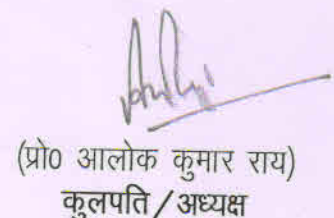 (प्रो0 आलोक कुमार राय)
कुलपति/अध्यक्ष